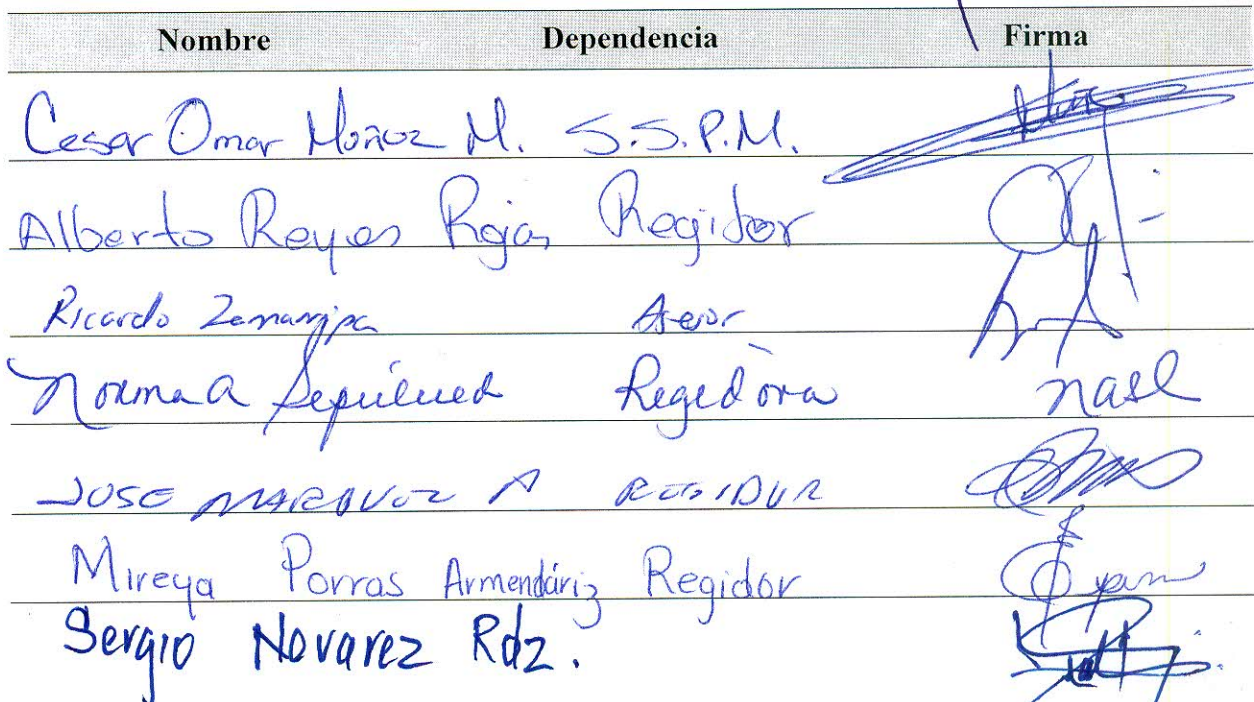 Nombre Dependencia Firma
Cesar Omar Muñoz M. S.S.P.M.
Alberto Reyes Rojas Regidor
Ricardo Asesor
Norma A Sepúlveda Regidora nasl
JOSE MARQUEZ A REGIDOR
Mireya Porras Armendáriz Regidor
Sergio Nevarez Rdz.